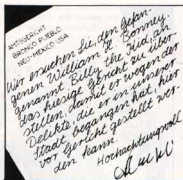 AMTSGERICHT
BRONCO PUEBLO
NEU-MEXICO USA
Wir ersuchen Sie, den Gefan-
genen William H. Bonney,
genannt Billy the Kid, an
das hiesige Gericht zu über-
stellen, damit er wegen der
Delikte, die er in unserer
Stadt begangen hat, hier
vor Gericht gestellt wer-
den kann.
Hochachtungsvoll